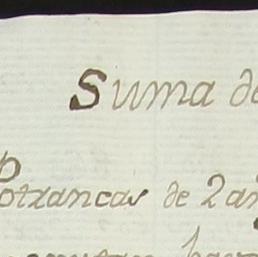 Suma de
Potrancas de 2 añ